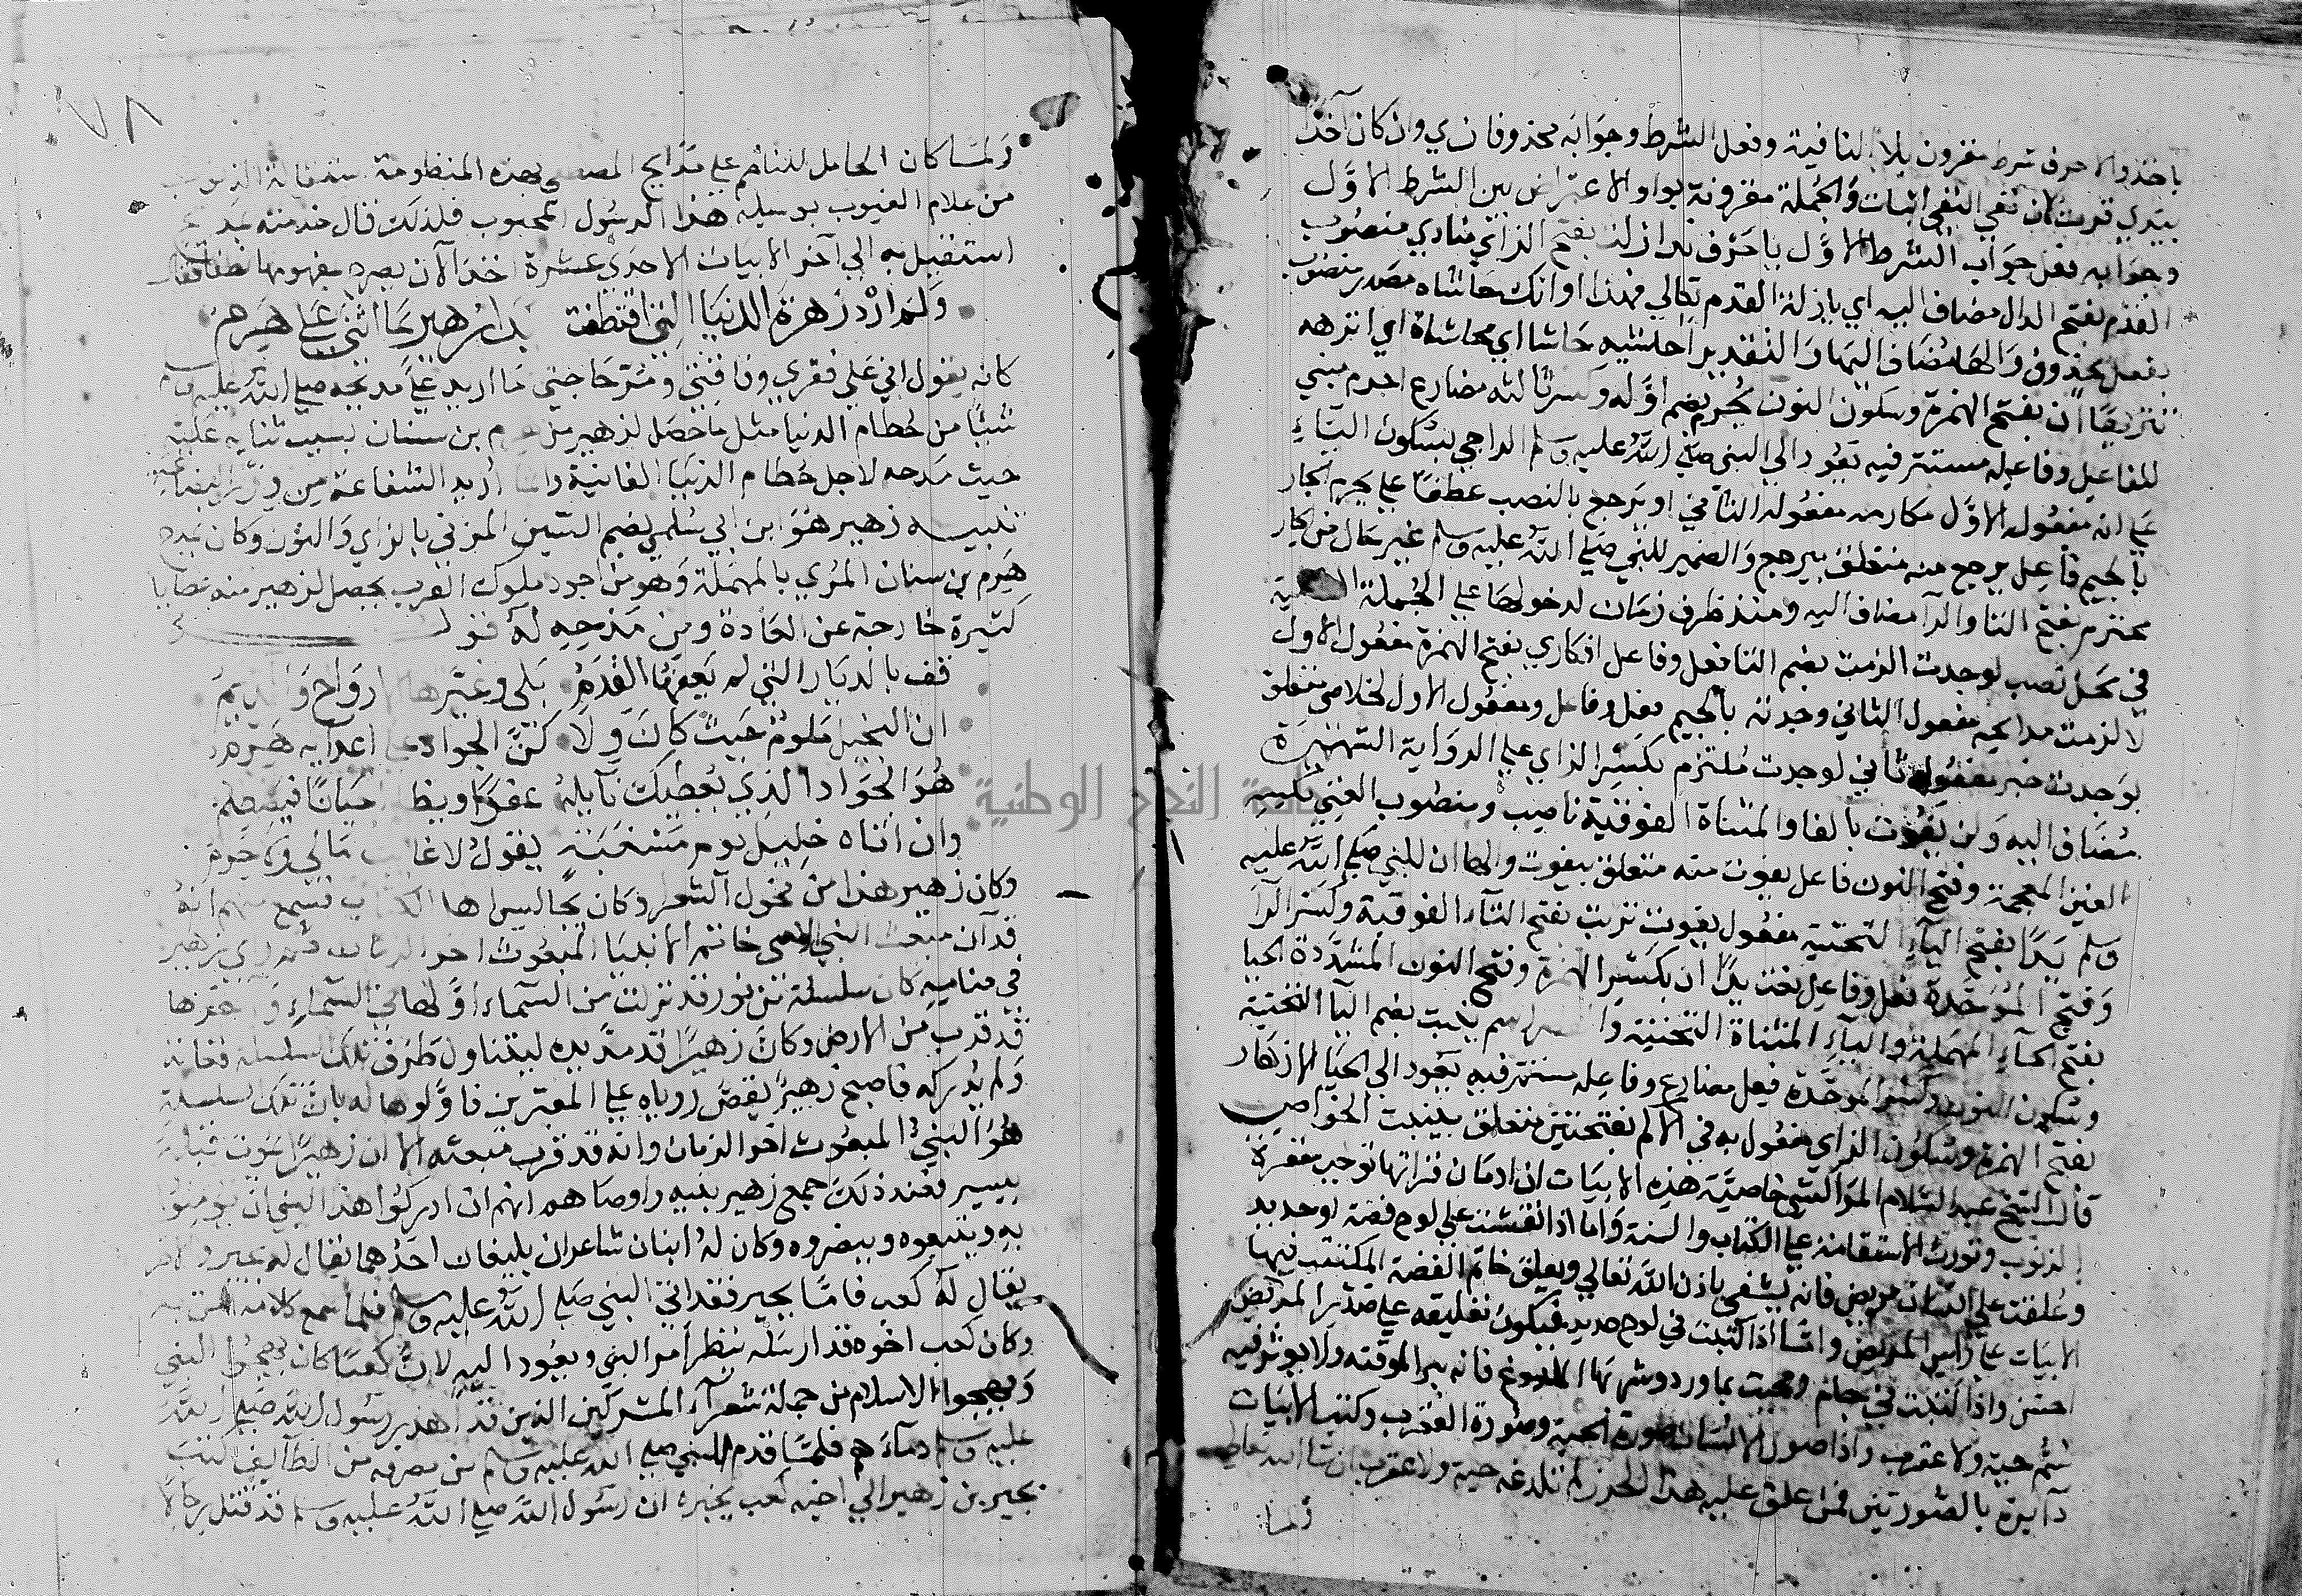 ياخذ والا حرف شرط مقرون بلا النافية وفعل الشرط وجوابه محذوفان ي وان كان آخذا
بيدي قرت لان نفي النفي اثبات والجملة مقرونة بواو الاعتراض بين الشرط الاول
وجوابه فقل جواب الشرط الاول يا حرف نداء زلة بفتح الزاي منادي منصوب
القدم بفتح الدال مضاف اليه اي يا زلة القدم تعالي فهذا اوانك حاشاه مصدر منصوب
بفعل محذوف والهاء مضاف اليها والتقدير احاشيه حاشا اي محاشاة اي انزهه
تنزيها ان بفتح الهمزة وسكون النون يحرم بضم اوله وكسر ثالثه مضارع احرم مبني
للفاعل وفاعله مستتر فيه يعود الي النبي صلي الله عليه وسلم الراجي بسكون الياء
علي انه مفعوله الاول مكارمه مفعوله الثاني او يرجع بالنصب عطفا علي يحرم الجار
بالجيم فاعل يرجع منه متعلق بيرجع والضمير للنبي صلي الله عليه وسلم غير حال من الجار
محترم بفتح التا والرا مضاف اليه ومنذ ظرف زمان لدخولها علي الجملة الفعلية
في محل نصب لوجدت الزمت بضم التا فعل وفاعل افكاري بفتح الهمزة مفعول الاول
لالزمت مدايحه مفعول الثاني وجدته بالجيم فعل وفاعل ومفعول الاول لخلاصي متعلق
بوجدت خير مفعول ثاني لوجدت ملتزم بكسر الزاي علي الرواية الشهيرة
مضاف اليه ولن يفوت بالفا والمثناة الفوقية ناصب ومنصوب الغني بكسر
الغين المعجمة وفتح النون فاعل يفوت منه متعلق بيفوت والها ان للنبي صلي الله عليه
وسلم يدا بفتح الياء التحتية مفعول يفوت تربت بفتح التاء الفوقية وكسر الرا
وفتح الموحدة فعل وفاعل نعت يدا ان بكسر الهمزة وفتح النون المشددة الحيا
بفتح الحاء المهملة والياء المثناة التحتية اسم ينبت بضم اليا التحتية
وسكون النون وكسر الموحدة فعل مضارع وفاعله مستتر فيه يعود الي الحيا الازهار
بفتح الهمزة وسكون الزاي مفعول به في الاكم بفتحتين متعلق بينبت الخواص
قال الشيخ عبد السلام المراكشي خاصية هذه الابيات ان ادمان قراتها توجب مغفرة
الذنوب وتورث الاستقامة علي الكتاب والسنة واما اذا نقشت علي لوح فضة او حديد
وعلقت علي انسان مريض فانه يشفي باذن الله تعالي ويعلق خاتم الفضة المكتتب فيها
الابيات علي راس المريض واما اذا كتبت في لوح حديد فيكون تعليقه علي صدر المريض
احسن واذا كتبت في جام ومحيت بماورد وشربها الملدوغ فانه يبرا لوقته ولا يوثر فيه
سم حية ولا عقرب واذا صور الانسان صورة الحية وصورة العقرب وكتب الابيات
دائرة بالصورتين فمن علق عليه هذا الحرز لم تلدغه حية ولا عقرب ان شا الله تعالي
ولما
٧٨
ولما كان الحامل للناظم علي مدايح المصطفي بهذه المنظومة استقالة الذنوب
من علام الغيوب بوسيلة هذا الرسول المحبوب فلذلك قال خدمته بمديح
استقيل به الي آخر الابيات الاحدي عشرة اخذ الآن يصرح بمفهومها فقال
ولم ارد زهرة الدنيا التي اقتطفت يدا زهير بما اثني علي هرم
كانه يقول اني علي فقري وفاقتي ومس حاجتي ما اريد علي مدحه صلي الله عليه وسلم
شيئا من حطام الدنيا مثل ما حصل لزهير من هرم بن سنان بسبب ثنايه عليه
حيث مدحه لاجل حطام الدنيا الفانية وانا اريد الشفاعة من
تنبيه زهير هو ابن ابي سلمي بضم السين المزني بالزاي والنون وكان يمدح
هرم بن سنان المري بالمهملة وهو من اجود ملوك العرب يحصل لزهير منه عطايا
كثيرة خارجة عن العادة ومن مدحه له قوله
قف بالديار التي لم يعفها القدم بلي وغيرها الارواح والديم
ان البخيل ملوم حيث كان ولا كن الجواد علي اعدايه هرم
هو الجواد الذي يعطيك نايله عفوا ويظلم احيانا فيظلم
وان اتاه خليل يوم مسغبة يقول لا غائب مالي ولا حرم
وكان زهير هذا من فحول الشعر وكان يجالس اهل الكتاب فسمع منهم انه
قد آن مبعث النبي الامي خاتم الانبيا المبعوث اخر الزمان فراي زهير
في منامه كان سلسلة من نور قد نزلت من السماء اولها في السماء واخرها
قد قرب من الارض وكان زهيرا قد مد يده ليتناول طرف تلك السلسلة ففاتته
ولم يدركه فاصبح زهير يقص روياه علي المعبرين فاولوها له بان تلك السلسلة
هو النبي المبعوث اخر الزمان وانه قد قرب مبعثه الا ان زهيرا يموت قبله
بيسير فعند ذلك جمع زهير بنيه واوصاهم انهم ان ادركوا هذا النبي ان يومنوا
به ويتبعوه وينصروه وكان له ابنان شاعران بليغان احدهما يقال له بجير والاخر
يقال له كعب فاما بجير فقد اتي النبي صلي الله عليه وسلم فلما سمع كلامه امن به
وكان كعب اخوه قد ارسله ينظر امر النبي ويعود اليه لان كعبا كان يهجوا النبي
ويهجوا الاسلام من جملة شعراء المشركين الذين قد اهدر رسول الله صلي الله
عليه وسلم دماءهم فلما قدم النبي صلي الله عليه وسلم من منصرفه من الطايف كتب
بجير بن زهير الي اخيه كعب يخبره ان رسول الله صلي الله عليه وسلم قد قتل رجالا
جامعة النجاح الوطنية